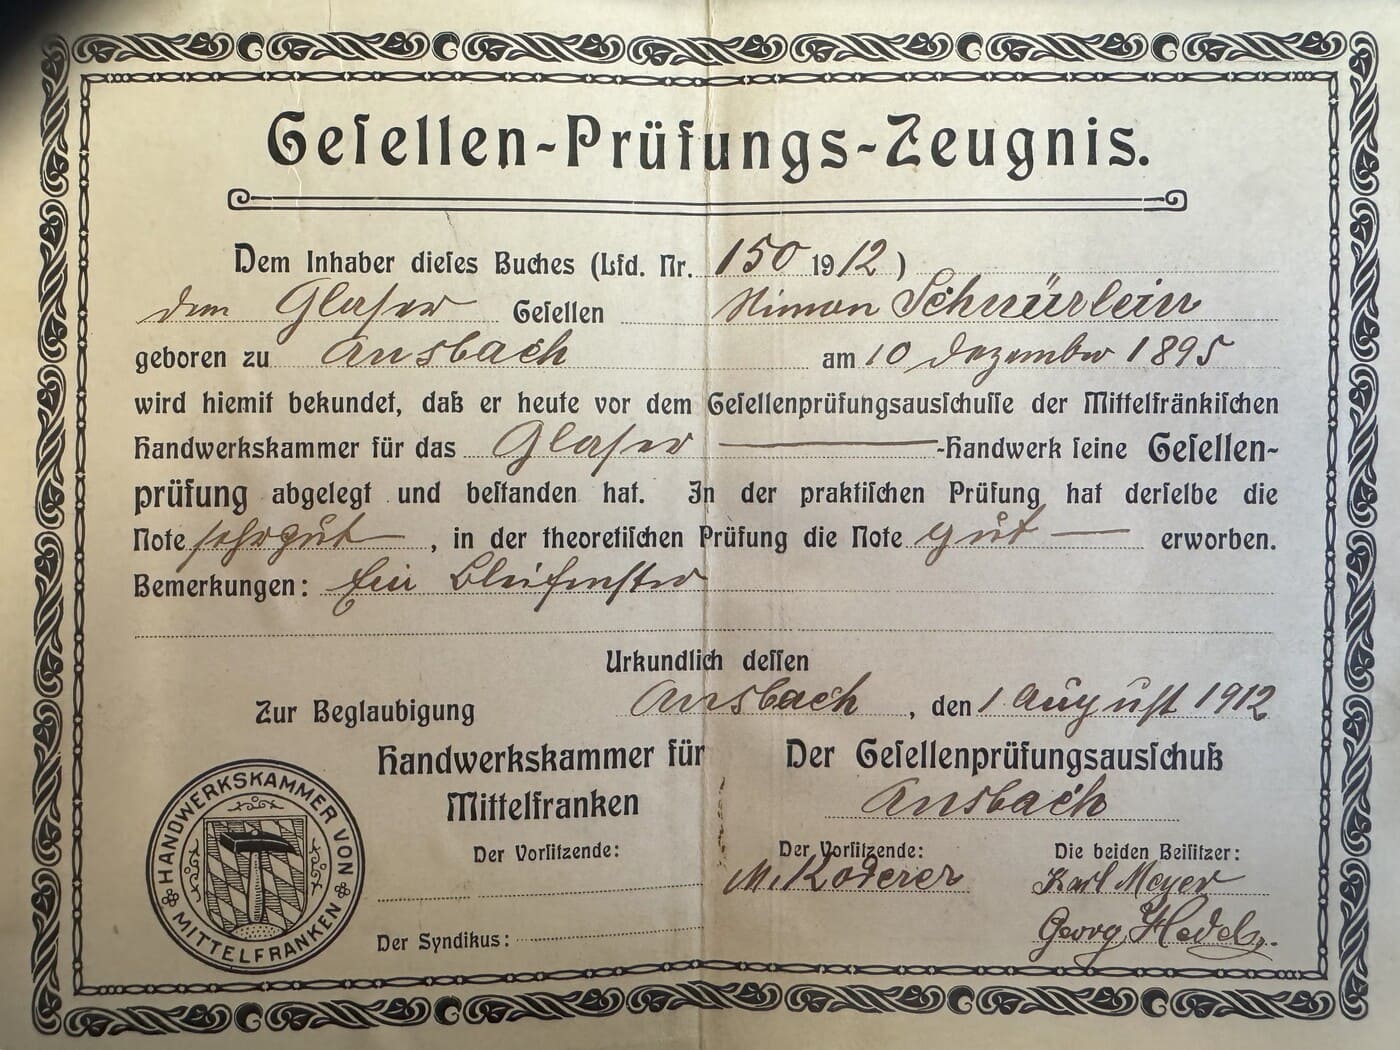 Gesellen-Prüfungs-Zeugnis.
Dem Inhaber dieses Buches (Lfd. Nr. 150 1912)
dem Glaser Gesellen Simon Schnürlein
geboren zu Ansbach am 10 Dezember 1895
wird hiemit bekundet, daß er heute vor dem Gesellenprüfungsausschusse der Mittelfränkischen
Handwerkskammer für das Glaser -Handwerk seine Gesellen-
prüfung abgelegt und bestanden hat. In der praktischen Prüfung hat derselbe die
Note sehr gut, in der theoretischen Prüfung die Note gut erworben.
Bemerkungen: Ein Bleifenster
Urkundlich dessen
Zur Beglaubigung Ansbach, den 1 August 1912
Handwerkskammer für Der Gesellenprüfungsausschuß
Mittelfranken Ansbach
Der Vorsitzende: Der Vorsitzende: Die beiden Beisitzer:
M. Koderer Karl Meyer
Der Syndikus: Georg
HANDWERKSKAMMER VON MITTELFRANKEN